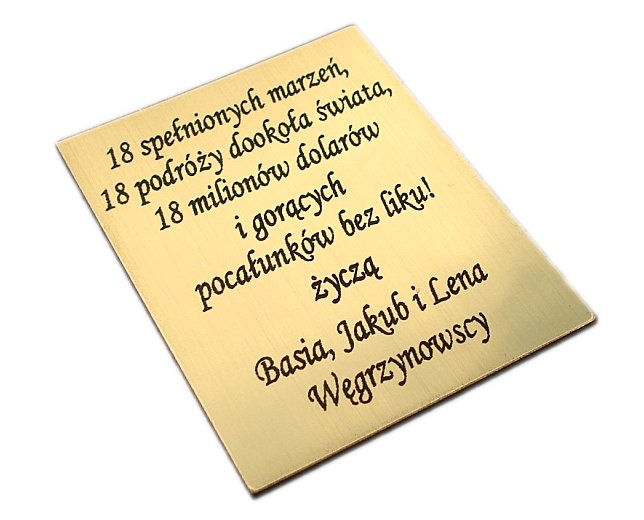 18 spełnionych marzeń,
18 podróży dookoła świata,
18 milionów dolarów
i gorących
pocałunków bez liku!
życzą
Basia, Jakub i Lena
Węgrzynowscy